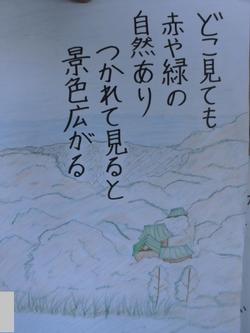 どこ見ても
赤や緑の
自然あり
つかれて見ると
景色広がる